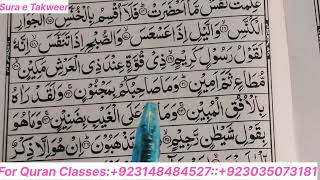 Sura e Takweer
عَلِمَتْ نَفْسٌ مَّاۤ اَحْضَرَتْ ۞ فَلَاۤ اُقْسِمُ بِالْخُنَّسِ ۞ الْجَوَارِ
الْكُنَّسِ ۞ وَالَّيْلِ اِذَا عَسْعَسَ ۞ وَالصُّبْحِ اِذَا تَنَفَّسَ ۞ اِنَّهٗ
لَقَوْلُ رَسُوْلٍ كَرِيْمٍ ۞ ذِيْ قُوَّةٍ عِنْدَ ذِي الْعَرْشِ مَكِيْنٍ ۞
مُّطَاعٍ ثَمَّ اَمِيْنٍ ۞ وَمَا صَاحِبُكُمْ بِمَجْنُوْنٍ ۞ وَلَقَدْ رَاٰهُ
بِالْاُفُقِ الْمُبِيْنِ ۞ وَمَا عَلَى الْغَيْبِ بِضَنِيْنٍ ۞ وَمَا هُوَ
بِقَوْلِ شَيْطٰنٍ رَّجِيْمٍ ۞ تَذْهَبُوْنَ ۞ اِنْ هُوَ اِلَّا ذِكْرٌ
For Quran Classes:+923148484527::+923035073181